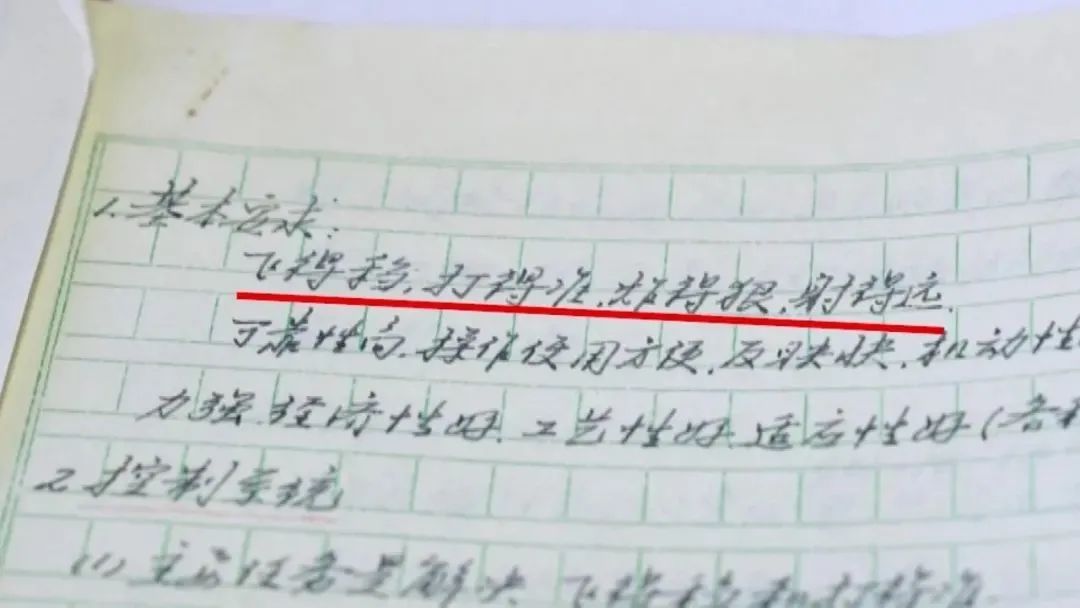 1.基本要求:
飞得稳,打得准,炸得狠,射得远.
可靠性高,操作使用方便,反映快,机动性
力强,经济性好,工艺性好,适应性好(各种
2.控制系统
(1)主要任务是解决飞得稳和打得准